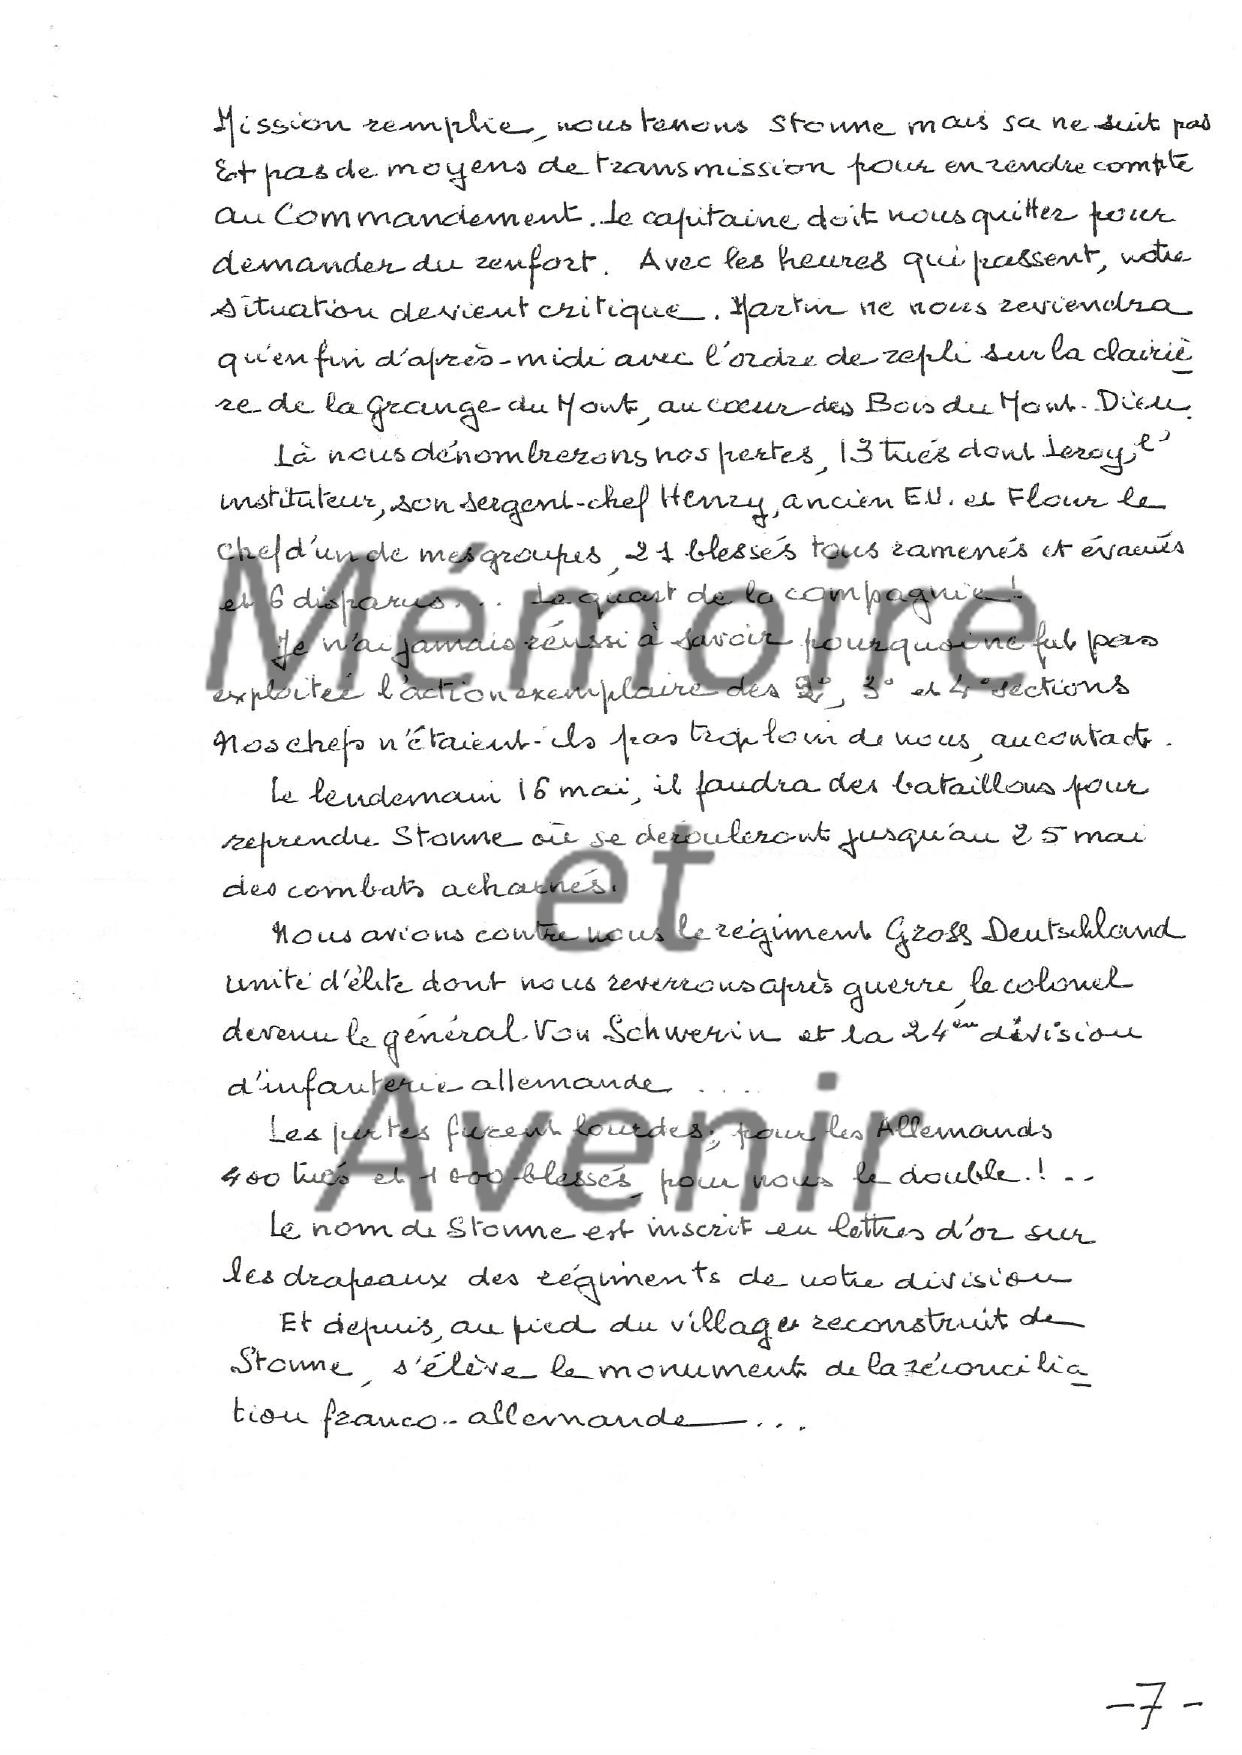 Mission remplie, nous tenons Stonne mais sa ne suit pas
Et pas de moyens de transmission pour en rendre compte
au Commandement. Le capitaine doit nous quitter pour
demander du renfort. Avec les heures qui passent, notre
situation devient critique. Martin ne nous reviendra
qu'en fin d'après-midi avec l'ordre de repli sur la clairiè
re de la Grange du Mont, au cœur des Bois du Mont-Dieu.
Là nous dénombrerons nos pertes, 13 tués dont Leroy, l'
instituteur, son sergent-chef Henry, ancien E.V. et Flour le
chef d'un de mes groupes, 21 blessés tous ramenés et évacués
et 6 disparus... Le quart de la compagnie!
Je n'ai jamais réussi à savoir pourquoi ne fut pas
exploitée l'action exemplaire des 2°, 3° et 4° sections
Nos chefs n'étaient-ils pas trop loin de nous, au contact.
Le lendemain 16 mai, il faudra des bataillons pour
reprendre Stonne où se dérouleront jusqu'au 25 mai
des combats acharnés.
Nous avions contre nous le régiment Gross Deutschland
unité d'élite dont nous reverrons après guerre, le colonel
devenu le général Von Schwerin et la 24ème division
d'infanterie allemande ....
Les pertes furent lourdes; pour les Allemands
400 tués et 1000 blessés, pour nous le double!...
Le nom de Stonne est inscrit en lettres d'or sur
les drapeaux des régiments de notre division
Et depuis, au pied du village reconstruit de
Stonne, s'élève le monument de la réconcilia
tion franco-allemande ...
-7-
Mémoire
et
Avenir